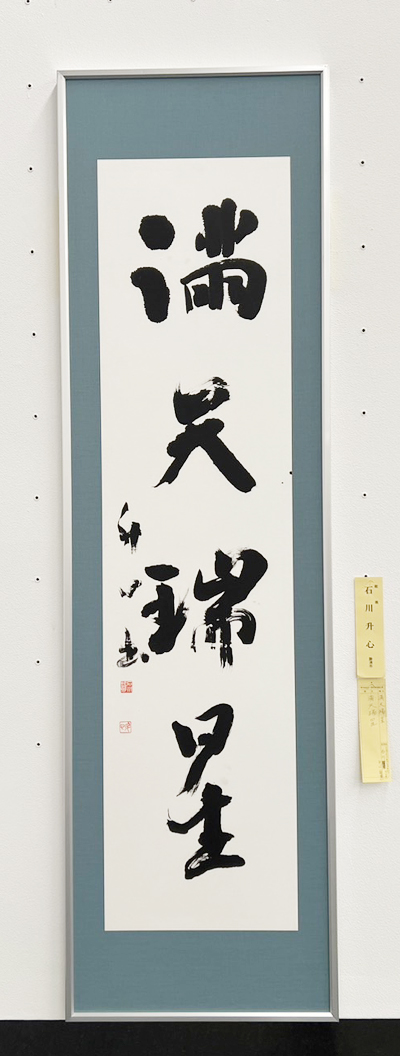 満天瑞星
升心書
石川升心